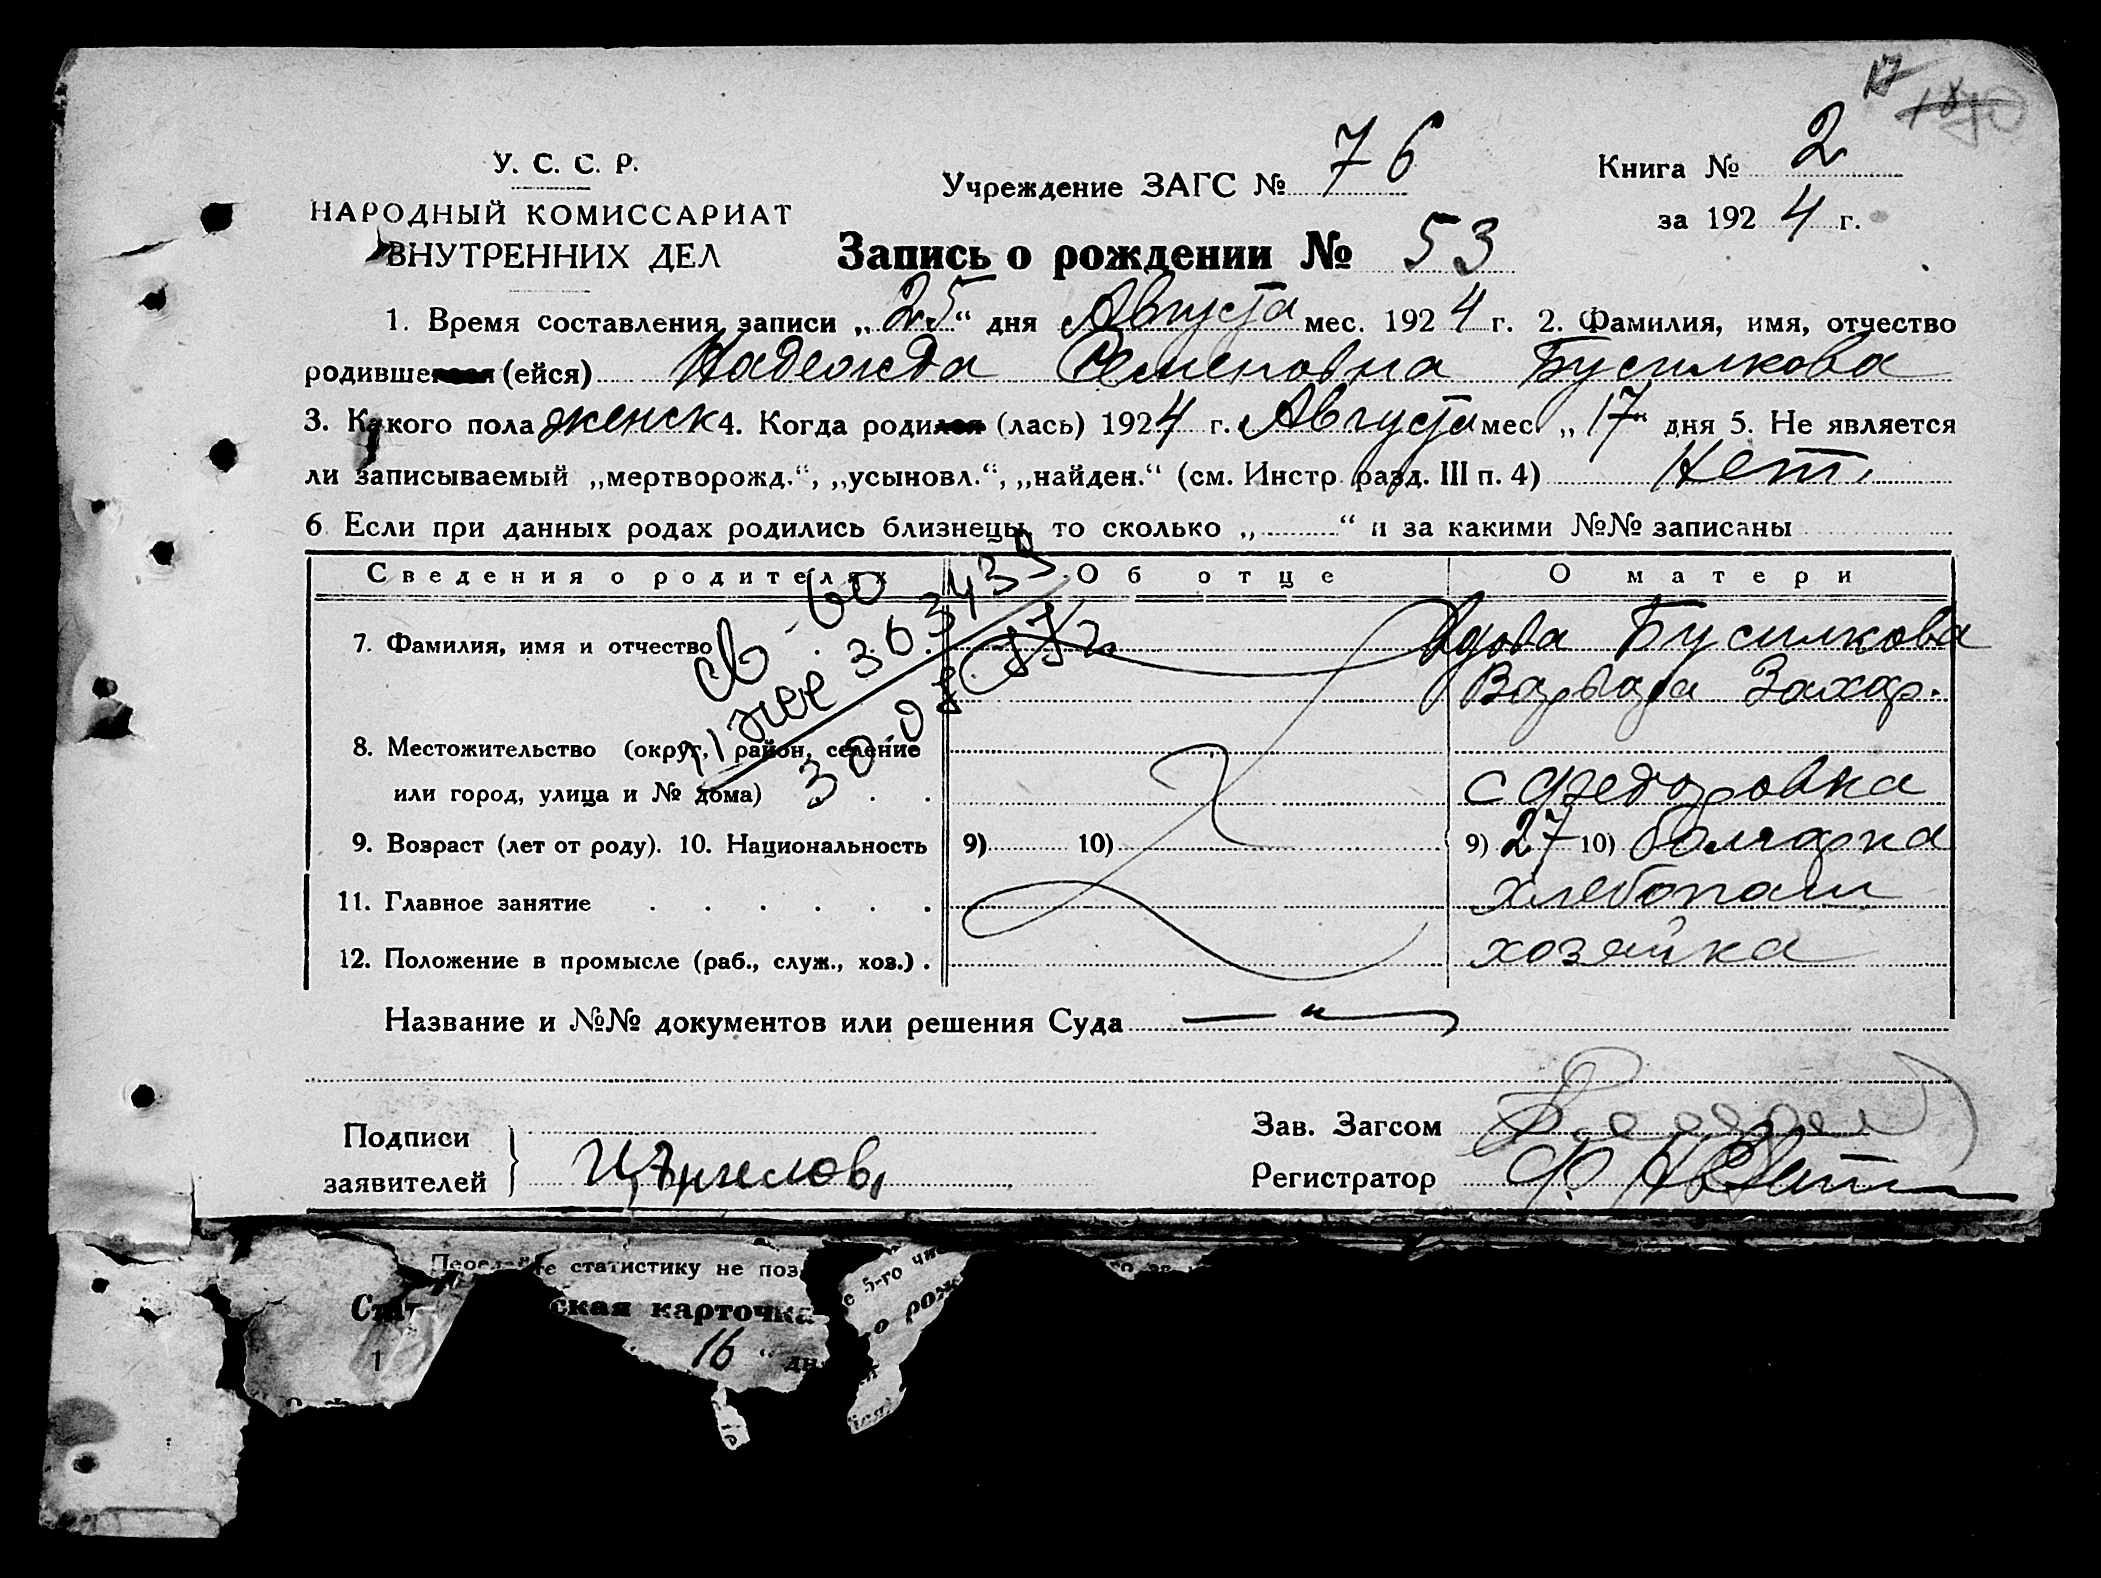 17 1870
У. С. С. Р.
НАРОДНЫЙ КОМИССАРИАТ
ВНУТРЕННИХ ДЕЛ
Учреждение ЗАГС № 76
Книга № 2
за 1924 г.
Запись о рождении № 53
1. Время составления записи „25“ дня Августа мес. 1924 г. 2. Фамилия, имя, отчество
родившегося (ейся) Надежда Семеновна Бусилкова
3. Какого пола женск 4. Когда родился (лась) 1924 г. Августа мес. „17“ дня 5. Не является
ли записываемый „мертворожд.“, „усыновл.“, „найден.“ (см. Инстр. разд. III п. 4) Нет.
6 Если при данных родах родились близнецы, то сколько „ “ и за какими №№ записаны
Сведения о родителях Об отце О матери
7. Фамилия, имя и отчество Вдова Бусилкова
Варвара Захар.
8. Местожительство (округ, район, селение
или город, улица и № дома) с Федоровка
9. Возраст (лет от роду). 10. Национальность 9) 10) 9) 27 10) болгарка
11. Главное занятие хлебопаш
12. Положение в промысле (раб., служ., хоз.) хозяйка
св - 60
363439
30.08.
Название и №№ документов или решения Суда — " —
Подписи
заявителей
Зав. Загсом
Регистратор
статистику не поз
Стат ская карточка
е 5-го чи
о рож
1 16 “ дн